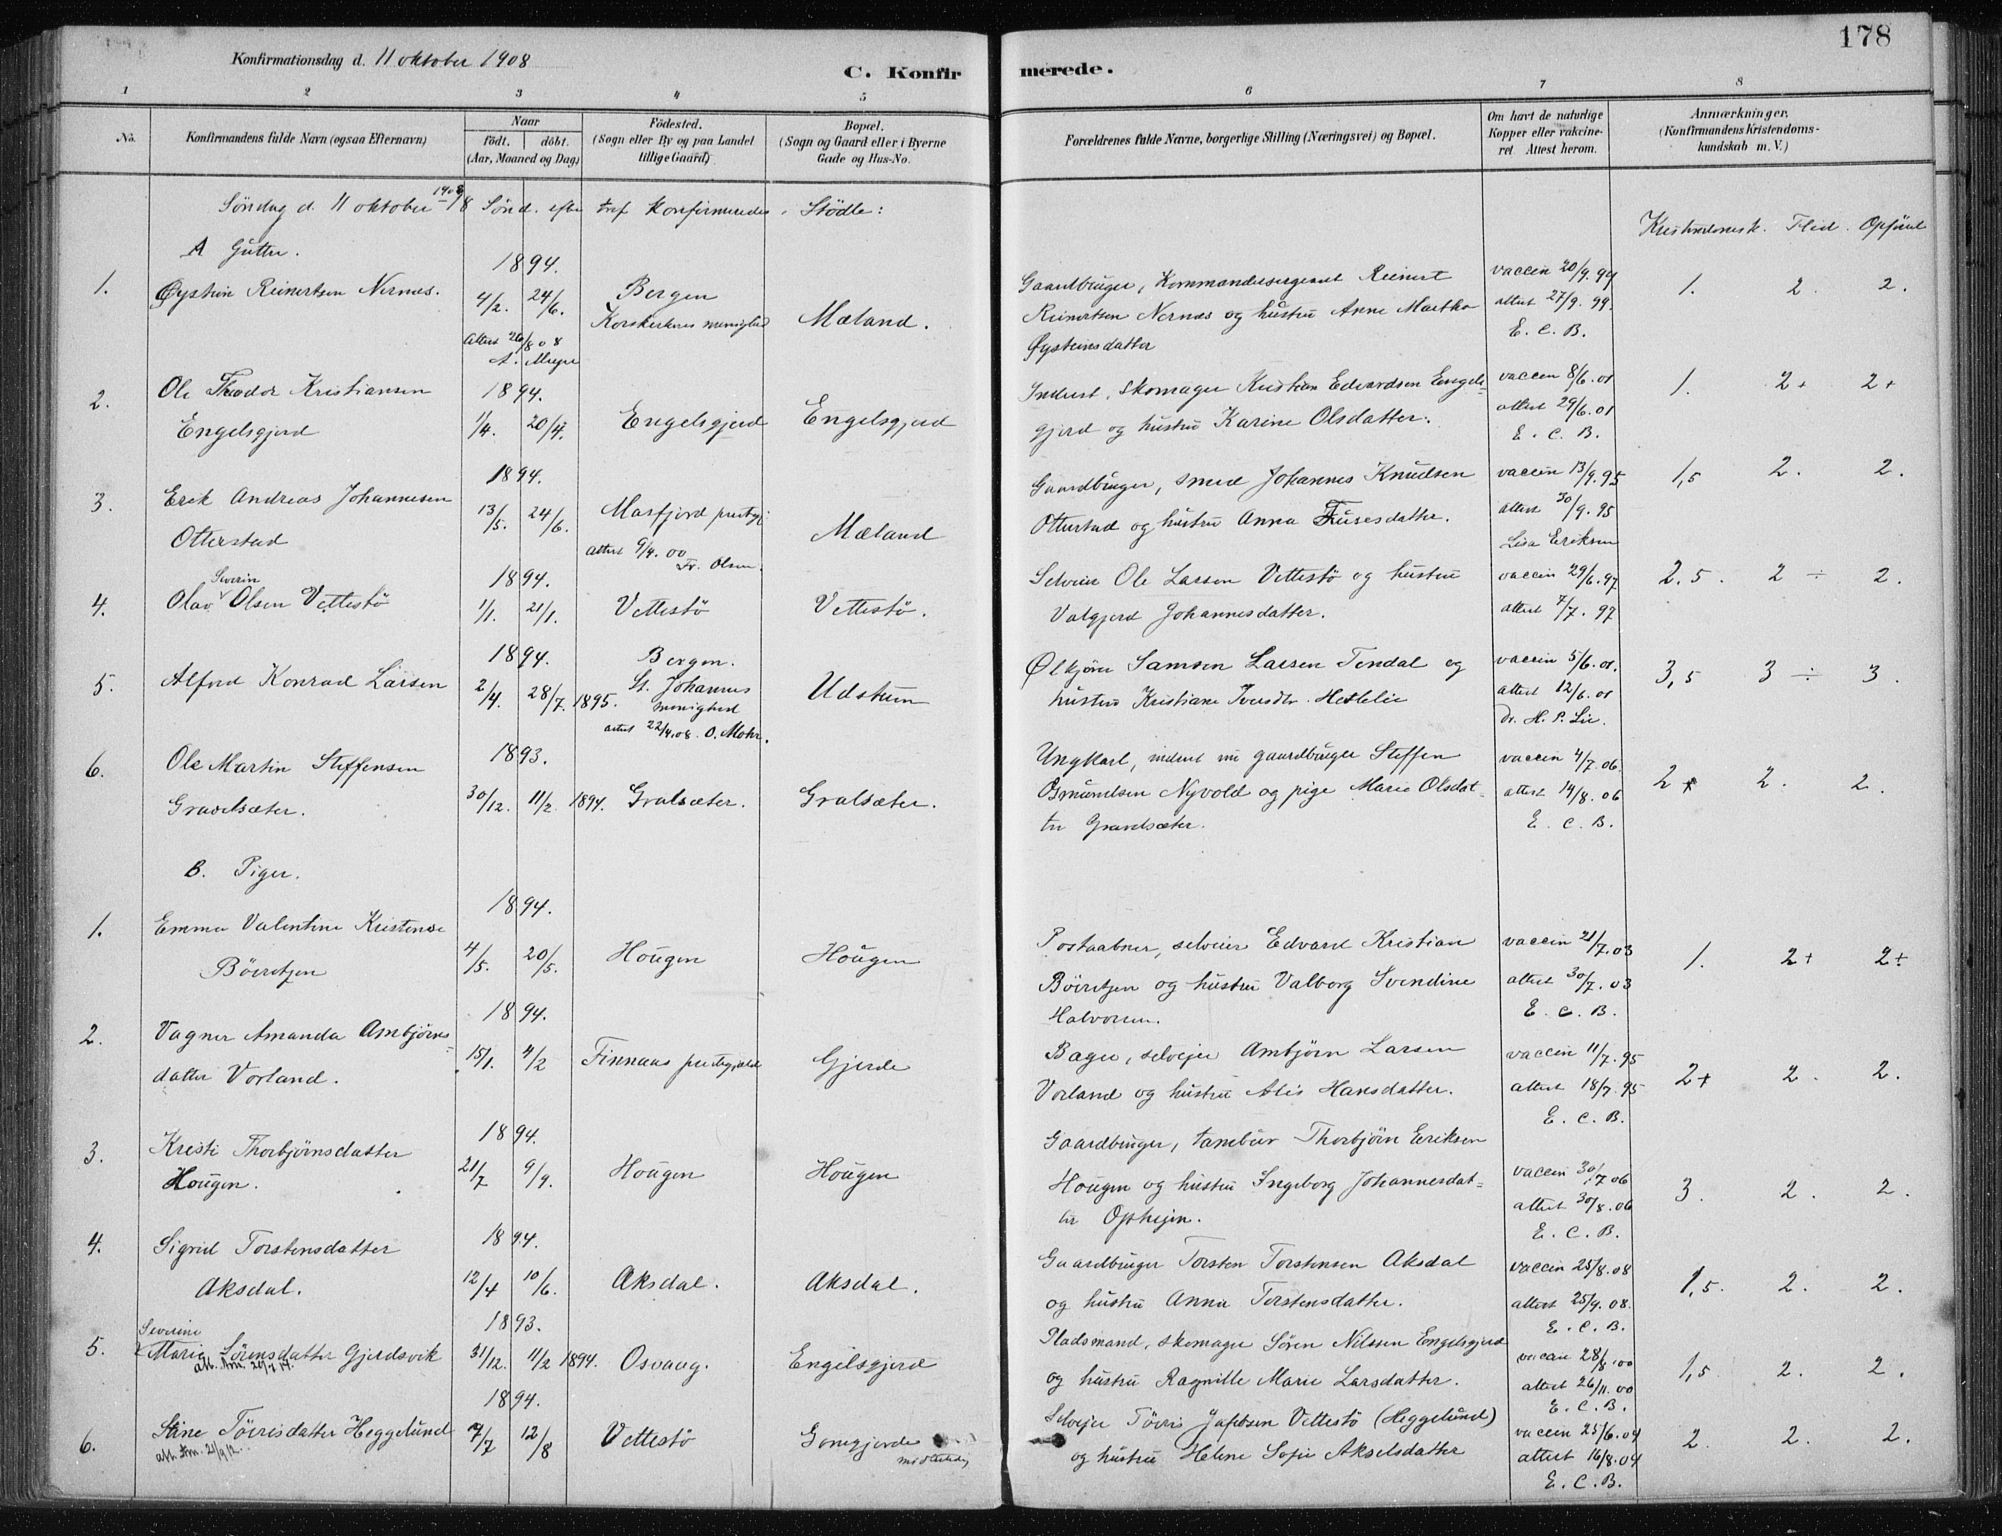 178
Konfirmationsdag d. 11 oktober 1908
C. Konfirmerede.
1 2 3 4 5 6 7 8
No.
Konfirmandens fulde Navn (ogsaa Efternavn)
Naar
födt. döbt.
(Aar, Maaned og Dag)
Födested.
(Sogn eller By og paa Landet
tillige Gaard)
Bopæl.
(Sogn og Gaard eller i Byerne
Gade og Hus-No.
Forældrenes fulde Navne, borgerlige Stilling (Næringsvei) og Bopæl.
Om havt de naturlige
Kopper eller vakcine-
ret Attest herom.
Anmærkninger.
(Konfirmandens Kristendoms-
kundskab m. V.)
Søndag d 11 oktober 1908 Sønd. efter tref konfirmeredes i Stödle:
Kristendomsk. Flid. Opførsel
A Gutter.
1. Øystein Reinertsen Nernæs.
1894.
4/2. 24/6.
Attest 26/8 08
A. Meyer
Bergen
Korskirkens menighed
Mæland.
Gaardbruger, Kommandersergeant Reinert
Reinertsen Nernæs og hustru Anne Martha
Øysteinsdatter
vaccin 20/9. 99
attest 27/9. 99.
E. C. B.
1. 2. 2.
2. Ole Theodor Kristiansen
Engelsgjerd
1894.
1/4. 20/4.
Engelsgjerd
Engelsgjerd
Inderst, skomager Kristian Edvardsen Engels-
gjerd og hustru Karine Olsdatter.
vaccin 8/6. 01
attest 29/6. 01
E. C. B.
1. 2+ 2+
3. Erik Andreas Johannesen
Otterstad
1894.
13/5. 24/6.
Masfjord prestgj
attest 9/4. 00
Fr. Olsen.
Mæland
Gaardbruger, smed Johannes Knudsen
Otterstad og hustru Anna Trusesdatter.
vaccin 13/9. 95
attest 30/9. 95
Lisa Eriksen
1,5 2. 2.
4. Olav Severin Olsen Vettestö
1894.
1/1. 21/1.
Vettestö
Vettestö.
Selveier Ole Larsen Vettestö og hustru
Valgjerd Johannesdatter.
vaccin 29/6. 97
attest 7/7. 97
2.5. 2 ÷ 2.
5. Alfred Konrad Larsen
1894.
2/4. 28/7. 1895.
Bergen.
St. Johannes
menighed
attest 22/4.08. O. Mohr.
Udstrum
Ølkjører Samson Larsen Tendal og
hustru Kristiane Iversdtr. Hetlelie
vaccin 5/6. 01.
attest 12/6. 01
Dr. H. P. Lie.
3,5 3 ÷ 3.
6. Ole Martin Steffensen
Gravelsæter.
1893.
30/12. 11/2. 1894.
Gralsæter.
Gralsæter.
Ungkarl, inderst nu gaardbruger Steffen
Osmundsen Nyvold og pige Marie Olsdat-
ter Gravelsæter.
vaccin 4/7. 06.
attest 14/8. 06
E. C. B.
2+ 2. 2.
B. Piger.
1. Emma Valentine Kristense
Böeretzen
1894.
4/5. 20/5.
Hougen
Hougen
Postaabner, selveier Edvard Kristian
Böiretzen og hustru Valborg Svendine
Halvorsen.
vaccin 21/7. 03
attest 30/7. 03
E. C. B.
1. 2+ 2÷
2. Vagner Amanda Ambjørns-
datter Vorland.
1894.
15/1. 4/2
Finnaas prestegjæld
Gjerde
Bager, selvejer Ambjörn Larsen
Vorland og hustru Alis Hansdatter.
vaccin 11/7. 95
attest 18/7. 95
E. C. B.
2+ 2. 2.
3. Kristi Thorbjörnsdatter
Hougen.
1894.
21/7 9/9.
Hougen
Hougen
Gaardbruger, tambur Thorbjörn Eriksen
Hougen og hustru Ingeborg Johannesdat-
ter Opheim.
vaccin 30/7 06
attest 30/8. 06
E. C. B.
3. 2. 2.
4. Sigrid Torstensdatter
Aksdal.
1894.
12/4 10/6.
Aksdal.
Aksdal.
Gaardbruger Torsten Torstensen Aksdal
og hustru Anna Torstensdatter.
vaccin 25/8. 08
attest 25/9. 08.
E. C. B.
1,5. 2. 2.
5. Severine
Marie Sørensdatter Gjerdsvik
att. Am. 20/7 17.
1893.
31/12. 11/2 1894.
Osvaag.
Engelsgjerd
Pladsmand, skomager Sören Nilssen Engelsgjerd
og hustru Ragnille Marie Larsdatter.
vaccin 28/8. 00
attest 26/11. 00
E. C. B.
1,5 2. 2.
6. Stine Töirisdatter Heggelund
att. Am. 21/9 12.
1894.
7/7 12/8
Vettestö
Gongjerde
Selvejer Töiris Jakobsen Vettestö (Heggelund)
og hustru Helene Sofie Akselsdatter
vaccin 25/6. 04
attest 16/8. 04
E. C. B.
2. 2. 2.